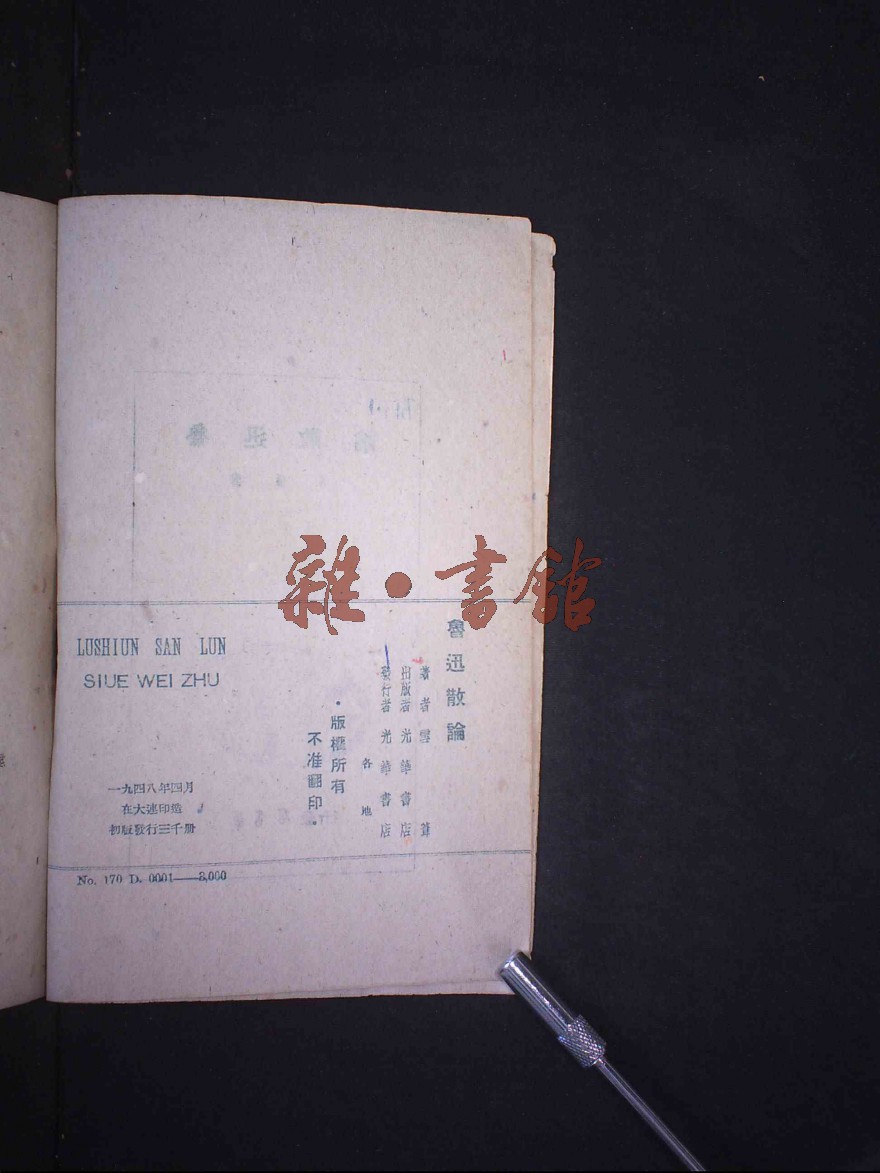 雜·書館
魯迅散論
著者 雪 鋒
出版者 光華書店
發行者 光華書店
各地
·版權所有
不准翻印·
LUSHIUN SAN LUN
SIUE WEI ZHU
一九四八年四月
在大連印造
初版發行三千册
No. 170 D. 0001——3,000